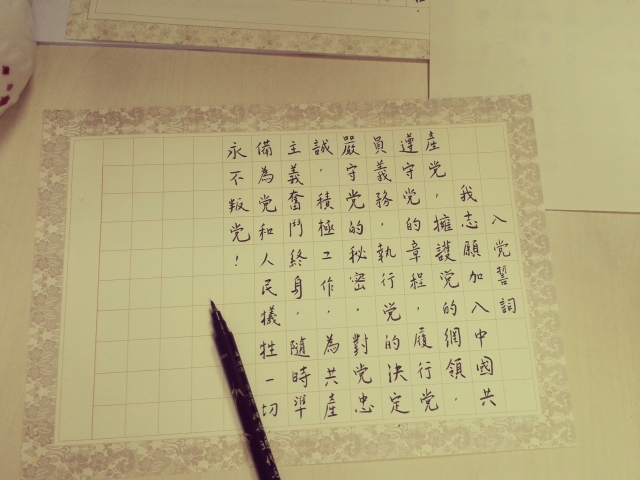 入党誓詞
我志願加入中國共
產党，擁護党的網領，
遵守党的章程，履行党
員義務，執行党的決定
嚴守党的秘密，對党忠
誠，積極工作，為共產
主義奮鬥終身，隨時準
備為党和人民犧牲一切
永不叛党！